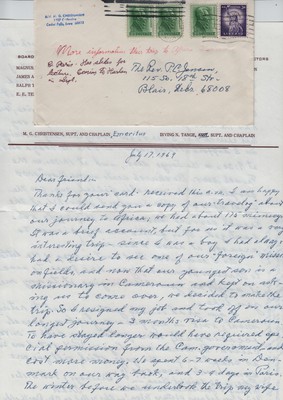 REV. M. G. CHRISTENSEN
Cedar Falls, Iowa 50613
More information than they to
The Rev. P.C. Jensen
115 So. 18th Str
Blair, Nebr. 68008
BOARD
MAGNUS
JAMES A
RALPH
E. E. TE
M. G. CHRISTENSEN, SUPT. AND CHAPLAIN Emeritus
SUPT. AND CHAPLAIN
July 17. 1969
Dear friend:
Thanks for your card - received this a.m. I am happy
that I could send you a copy of our "travelog" about
our journey to Africa, we had about 175 mimeogr.
It was a brief account, but for us it was a very
interesting trip - since I was a boy I had always
had a desire to see one of our foreign mission
fields and now that our youngest son is a
missionary in Cameroun and kept on ask-
ing us to come over, we decided to make the
trip. So I resigned my job and took off on our
longest journey - 3 months visa to Cameroun
To have stayed longer would have required spe-
cial permission from the Cam. government and
cost more money. We spent 6-7 weeks in Den-
mark on our way back, and 3-4 days in Paris.
The winter before we undertook the trip my wife